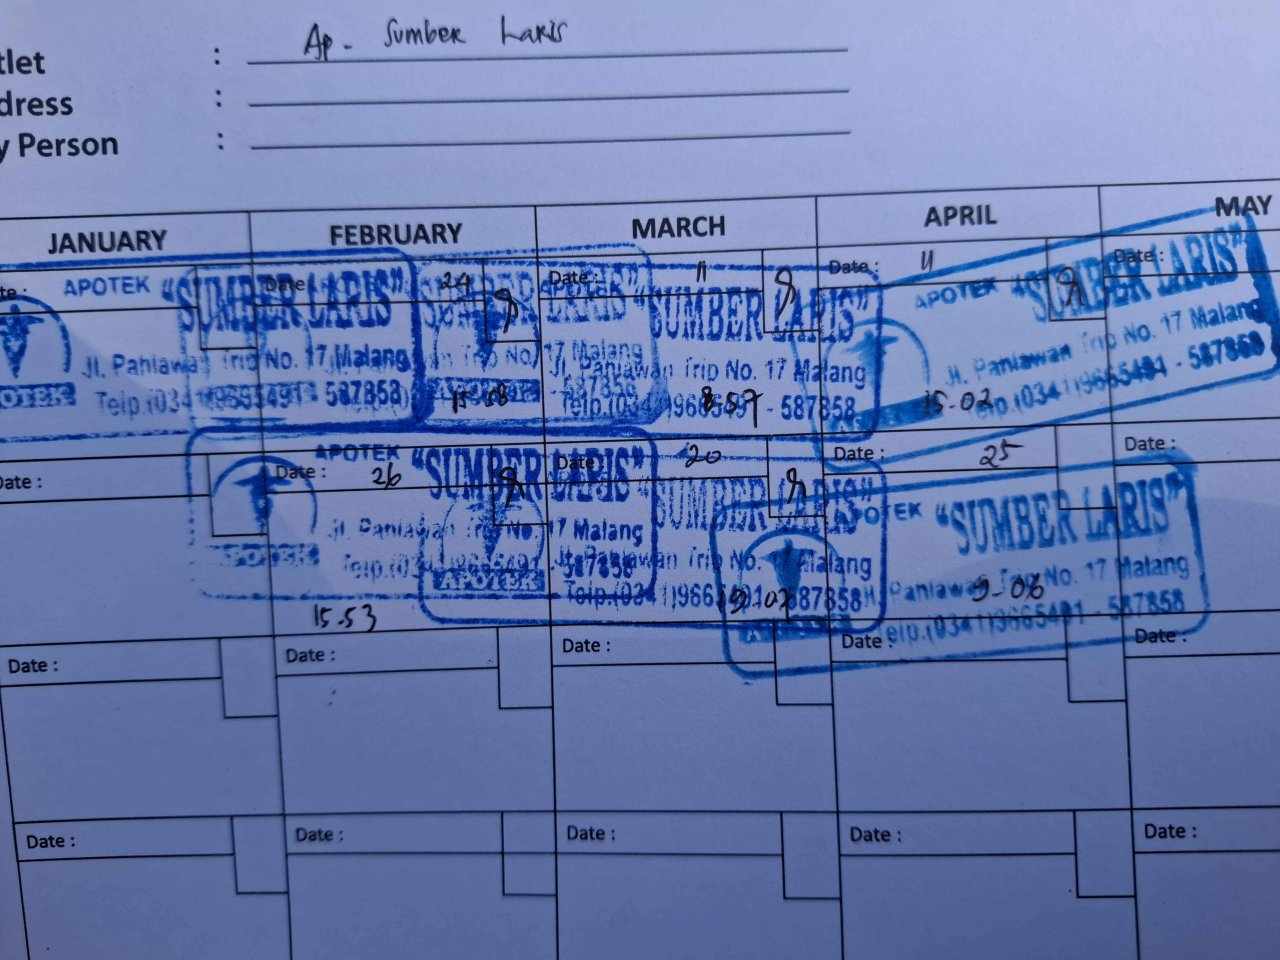 tlet : Ap. Sumber Laris
dress :
y Person :
JANUARY FEBRUARY MARCH APRIL MAY
te: Date 24 Date: 11 Date: 11 Date:
APOTEK "SUMBER LARIS"
Jl. Pahlawan Trip No. 17 Malang
Telp.(0341)9665491 - 587858
APOTEK
"SUMBER LARIS"
Trip No. 17 Malang
587858
15.08
"SUMBER LARIS"
Jl. Pahlawan Trip No. 17 Malang
Telp.(0341)9665491 - 587858
8.57
APOTEK "SUMBER LARIS"
Jl. Pahlawan Trip No. 17 Malang
Telp.(0341)9665491 - 587858
15-02
Date: Date: 26 Date: 20 Date: 25 Date:
APOTEK "SUMBER LARIS"
Jl. Pahlawan Trip No. 17 Malang
Telp.(0341)9665491 587858
APOTEK
15.53
"SUMBER LARIS"
Jl. Pahlawan Trip No. 17 Malang
Telp.(0341)9665491 - 587858
APOTEK
9.02
APOTEK "SUMBER LARIS"
Jl. Pahlawan Trip No. 17 Malang
Telp.(0341)9665491 - 587858
9-06
Date: Date: Date: Date: Date:
Date: Date: Date: Date: Date: